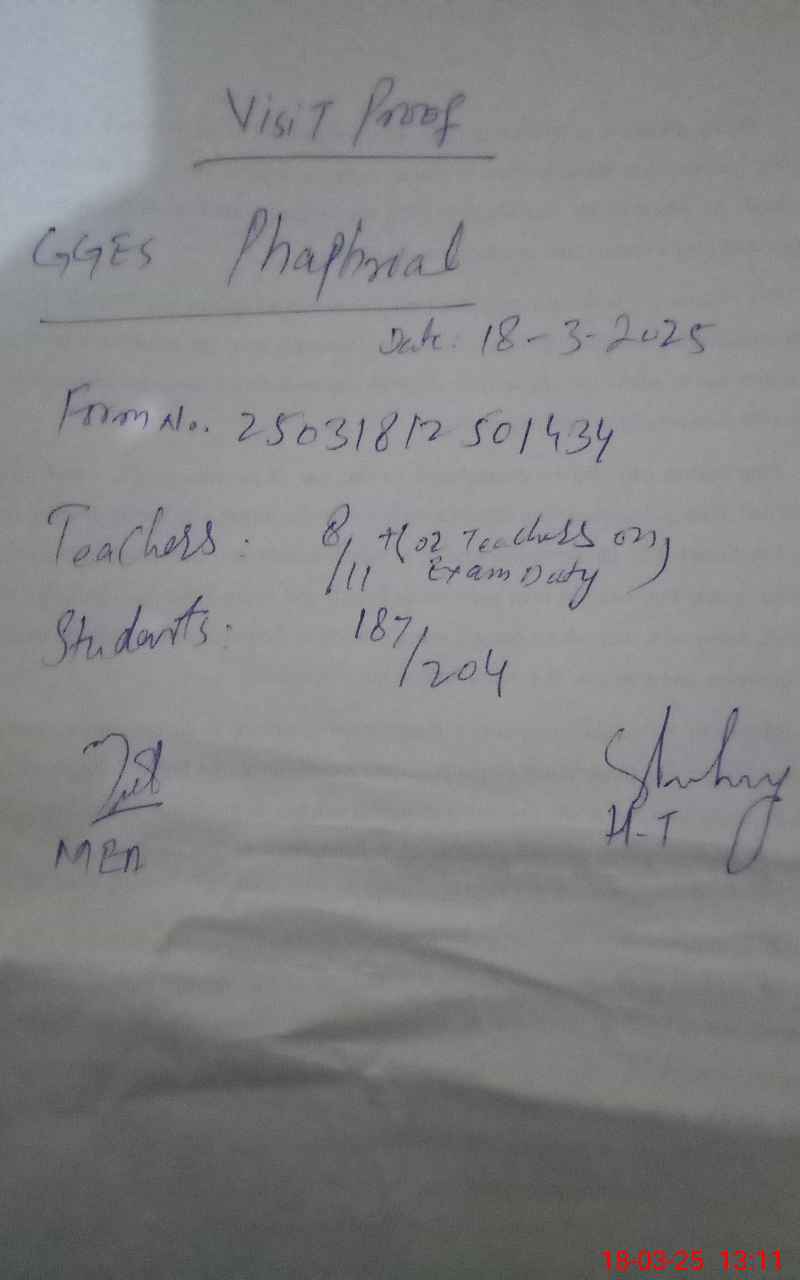 Visit Proof
GGES Phaphrial
Date: 18-3-2025
Form No. 25031812501434
Teachers: 8/11 +(02 Teachers on Exam Duty)
Students: 187/204
MEA
H-T
18-03-25 13:11